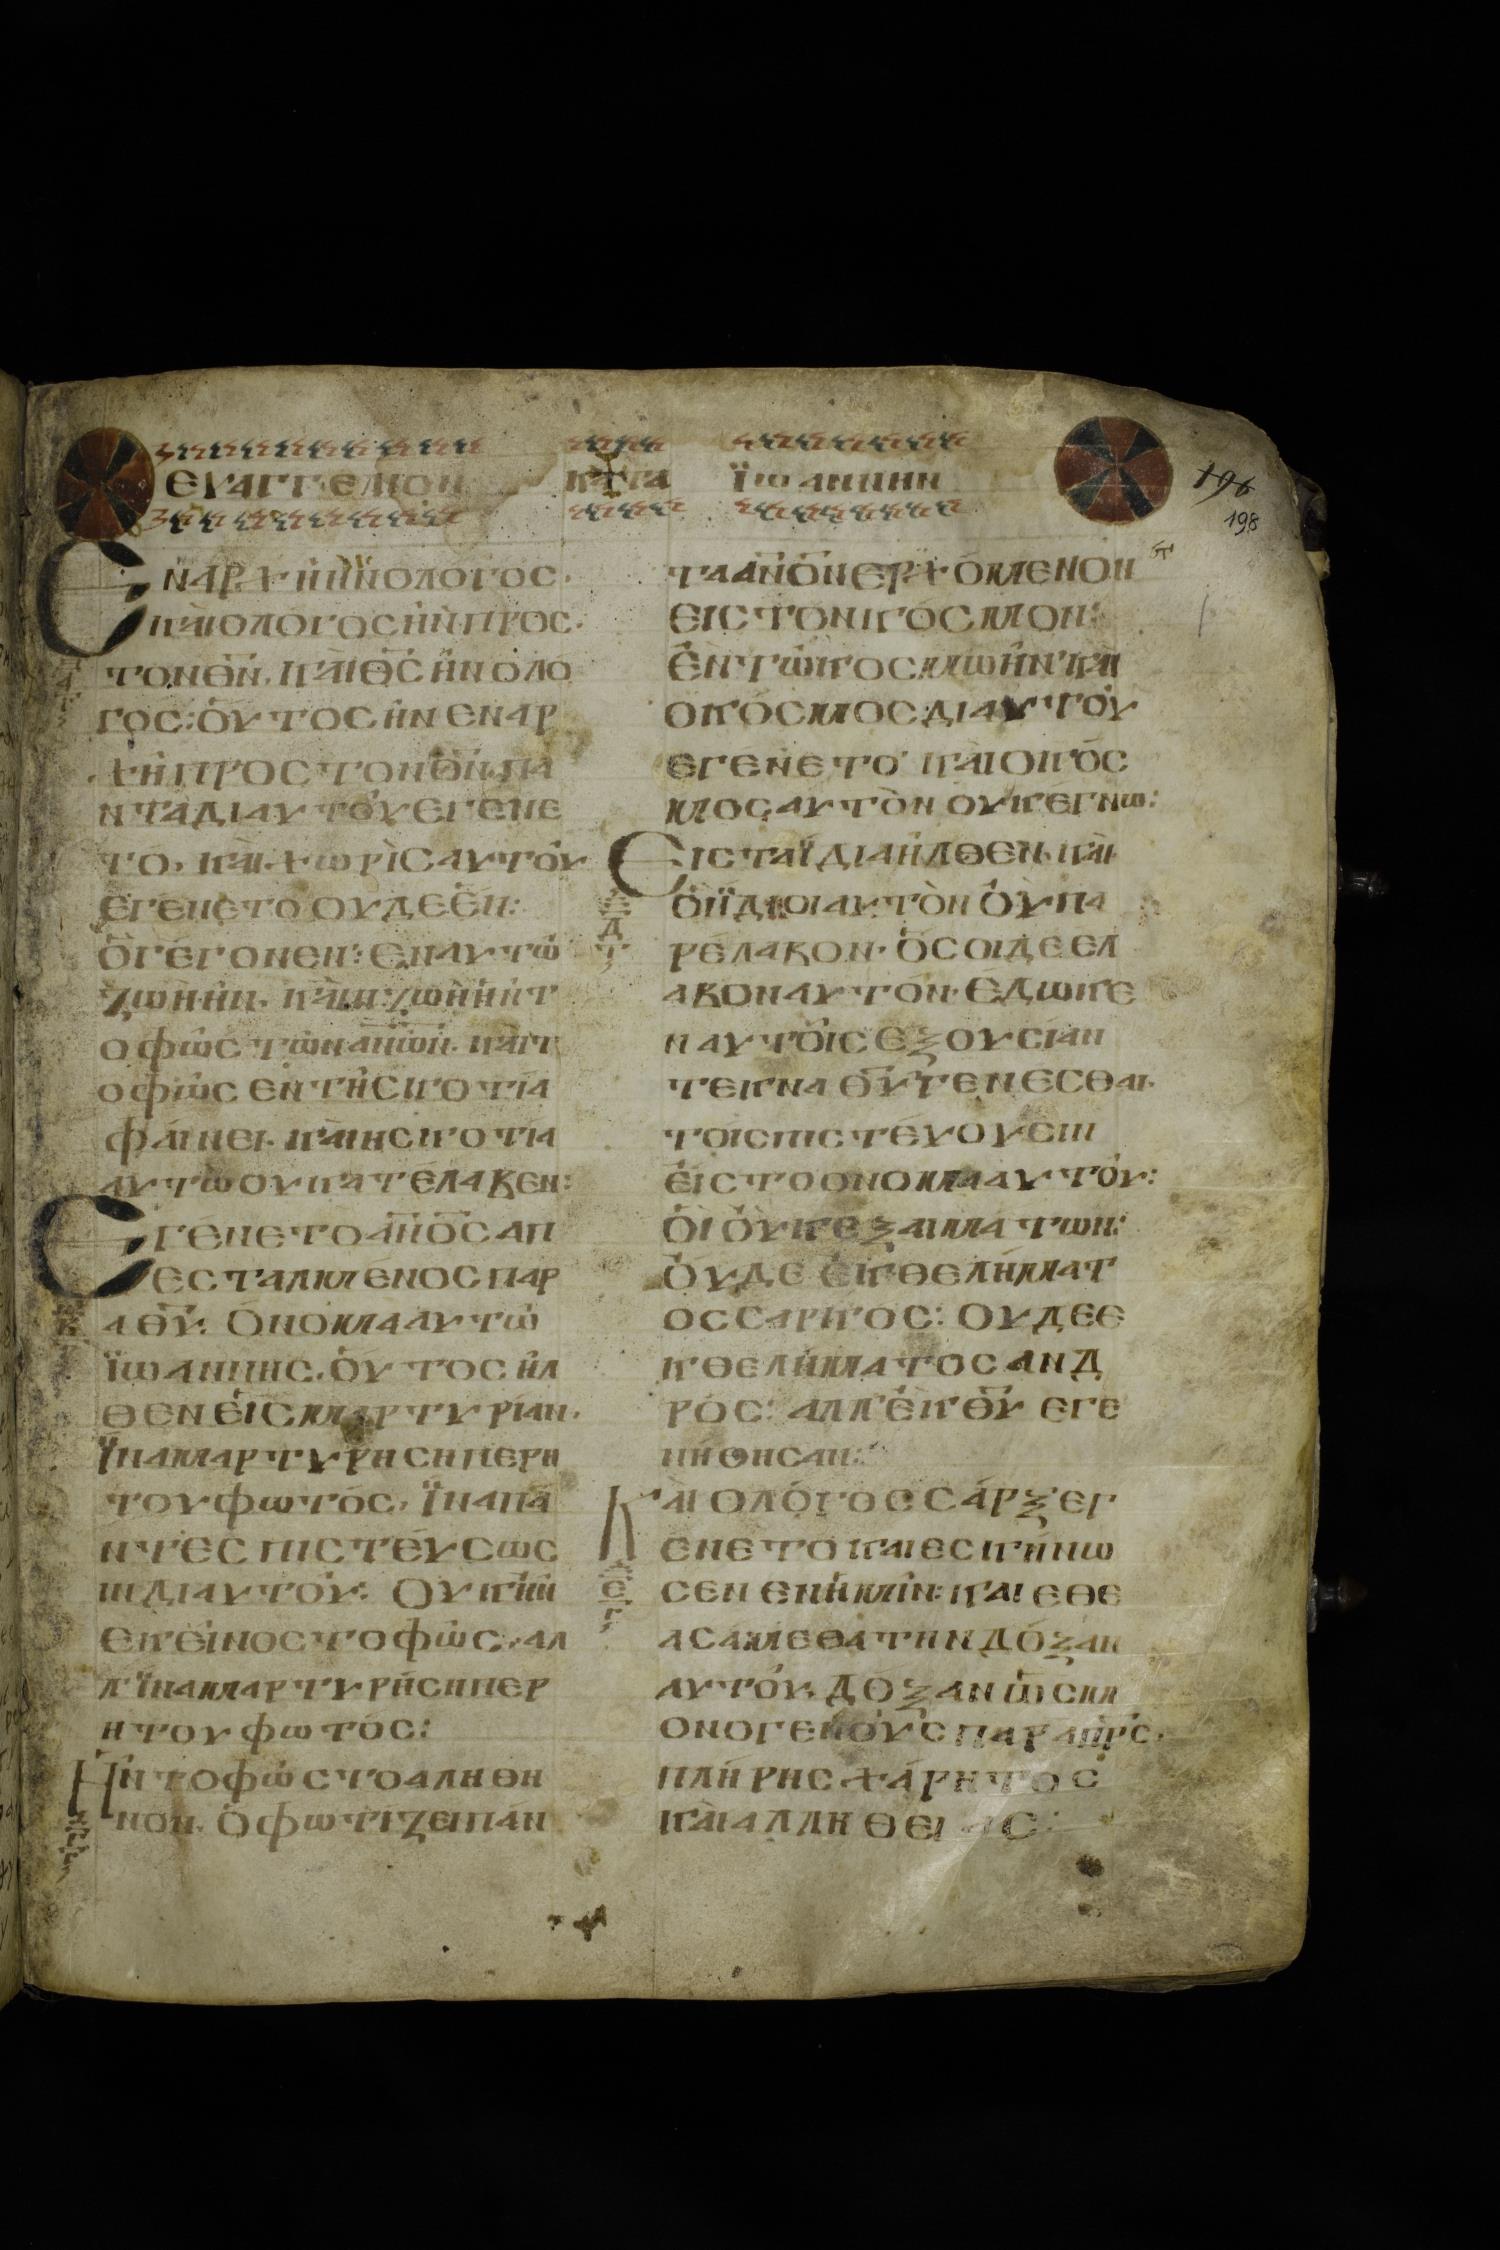 ΕΥΑΓΓΕΛΙΟΝ ΚΑΤΑ ΪΩΑΝΝΗΝ
196
198
ΕΝΑΡΧΗΗΝΟΛΟΓΟΣ·
ΚΑΙΟΛΟΓΟΣΗΝΠΡΟΣ·
ΤΟΝΘΝ· ΚΑΙΘΣΗΝΟΛΟ
ΓΟΣ: ΟΥΤΟΣΗΝΕΝΑΡ
ΧΗΠΡΟΣΤΟΝΘΝ·ΠΑ
ΝΤΑΔΙΑΥΤΟΥΕΓΕΝΕ
ΤΟ· ΚΑΙΧΩΡΙΣΑΥΤΟΥ
ΕΓΕΝΕΤΟΟΥΔΕΕΝ:
ΟΓΕΓΟΝΕΝ: ΕΝΑΥΤΩ
ΖΩΗΗΝ· ΚΑΙΗΖΩΗΗΝΤ
ΟΦΩΣΤΩΝΑΝΩΝ· ΚΑΙΤ
ΟΦΩΣΕΝΤΗΣΚΟΤΙΑ
ΦΑΙΝΕΙ· ΚΑΙΗΣΚΟΤΙΑ
ΑΥΤΩΟΥΚΑΤΕΛΑΒΕΝ:
ΕΓΕΝΕΤΟΑΝΟΣΑΠ
ΕΣΤΑΛΜΕΝΟΣΠΑΡ
ΑΘΥ· ΟΝΟΜΑΑΥΤΩ
ΪΩΑΝΝΗΣ· ΟΥΤΟΣΗΛ
ΘΕΝΕΙΣΜΑΡΤΥΡΙΑΝ·
ΪΝΑΜΑΡΤΥΡΗΣΗΠΕΡΗ
ΤΟΥΦΩΤΟΣ· ΪΝΑΠΑ
ΝΤΕΣΠΙΣΤΕΥΣΩΣ
ΙΝΔΙΑΥΤΟΥ: ΟΥΚΗΝ
ΕΚΕΙΝΟΣΤΟΦΩΣ· ΑΛ
ΛΪΝΑΜΑΡΤΥΡΗΣΗΠΕΡ
ΗΤΟΥΦΩΤΟΣ:
ΗΝΤΟΦΩΣΤΟΑΛΗΘΗ
ΝΟΝ· ΟΦΩΤΙΖΕΙΠΑΝ
ΤΑΑΝΟΝΕΡΧΟΜΕΝΟΝ
ΕΙΣΤΟΝΚΟΣΜΟΝ:
ΕΝΤΩΚΟΣΜΩΗΝΚΑΙ
ΟΚΟΣΜΟΣΔΙΑΥΤΟΥ
ΕΓΕΝΕΤΟ· ΚΑΙΟΚΟΣ
ΜΟΣΑΥΤΟΝΟΥΚΕΓΝΩ:
ΕΙΣΤΑΪΔΙΑΗΛΘΕΝ· ΚΑΙ
ΟΙΪΔΙΟΙΑΥΤΟΝΟΥΠΑ
ΡΕΛΑΒΟΝ· ΟΣΟΙΔΕΕΛ
ΑΒΟΝΑΥΤΟΝ· ΕΔΩΚΕ
ΝΑΥΤΟΙΣΕΞΟΥΣΙΑΝ
ΤΕΚΝΑΘΥΓΕΝΕΣΘΑΙ·
ΤΟΙΣΠΙΣΤΕΥΟΥΣΙΝ
ΕΙΣΤΟΟΝΟΜΑΑΥΤΟΥ:
ΟΙΟΥΚΕΞΑΙΜΑΤΩΝ:
ΟΥΔΕΕΚΘΕΛΗΜΑΤ
ΟΣΣΑΡΚΟΣ: ΟΥΔΕΕ
ΚΘΕΛΗΜΑΤΟΣΑΝΔ
ΡΟΣ: ΑΛΛΕΚΘΥΕΓΕ
ΝΗΘΗΣΑΝ:
ΚΑΙΟΛΟΓΟΣΣΑΡΞΕΓ
ΕΝΕΤΟΚΑΙΕΣΚΗΝΩ
ΣΕΝΕΝΗΜΙΝ: ΚΑΙΕΘΕ
ΑΣΑΜΕΘΑΤΗΝΔΟΞΑΝ
ΑΥΤΟΥ· ΔΟΞΑΝΩΣΜ
ΟΝΟΓΕΝΟΥΣΠΑΡΑΠΡΣ·
ΠΛΗΡΗΣΧΑΡΗΤΟΣ
ΚΑΙΑΛΛΗΘΕΙΑΣ: